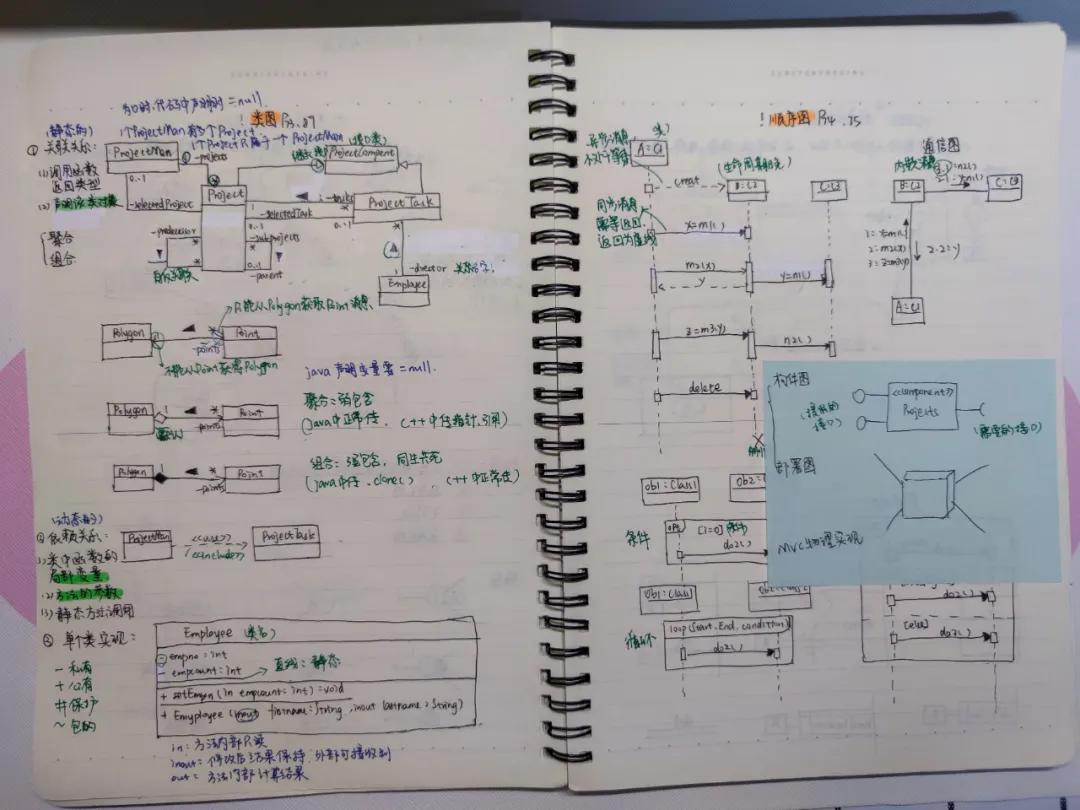 为0时,代码中声明时=null.
! 类图 P73.87
(静态的)
① 关联关系:
1个ProjectMan有多个Project
1个Project只属于一个ProjectMan
(接口类)
ProjectMan
-projects
(1)调用函数
返回类型
(2)声明该类对象
0..1
-selectedProject
Project
-tasks
Project Task
-selectedTask
0..1
-subprojects
-predecessor
0..1
-parent
聚合
组合
自身关联
-director
Employee
只能从Polygon获取Point消息
Polygon
Point
-points
不能从Point获得Polygon
java声明变量要=null.
Polygon
Point
-points
聚合:弱包含
(java中正常传, C++中传指针、引用)
Polygon
Point
-points
组合:强包含,同生共死
(java中传.clone() C++中正常传)
(动态的)
依赖关系:
ProjectMan
<<use>>
<<include>>
ProjectTask
(1)类中函数的
局部变量
(2)方法的参数
(3)静态方法调用
单个类实现:
Employee 类名
empno:int
- empcount:int
直线:静态
+ setEmpn(in empcount:int):void
+ Employee(inout firstname:String, inout lastname:String)
- 私有
+ 公有
# 保护
~ 包的
in:方法内部只读
inout=修改后结果保持,外部可接收到
out=方法内部计算结果
! 顺序图 P74.75
通信图
异步消息
不处于等待
A=C1
creat
(生命周期起点)
B=C2
C=C3
同步消息
需等待返回,
返回为虚线
x=m1()
m2(x)
y
y=n1()
z=m3(y)
n2()
delete
内嵌消息
B=C2
C=C3
1: x=m1()
2: m2(x)
3: z=m3(y)
2.2:y
A=C1
构件图
<<component>>
Projects
(提供的
接口)
(需要的接口)
部署图
MVC物理实现
Ob1:Class1
条件
[i=0]
do2()
Ob1:Class1
循环
loop(Start,End,condition)
do2()
do2()
[else]
do2()